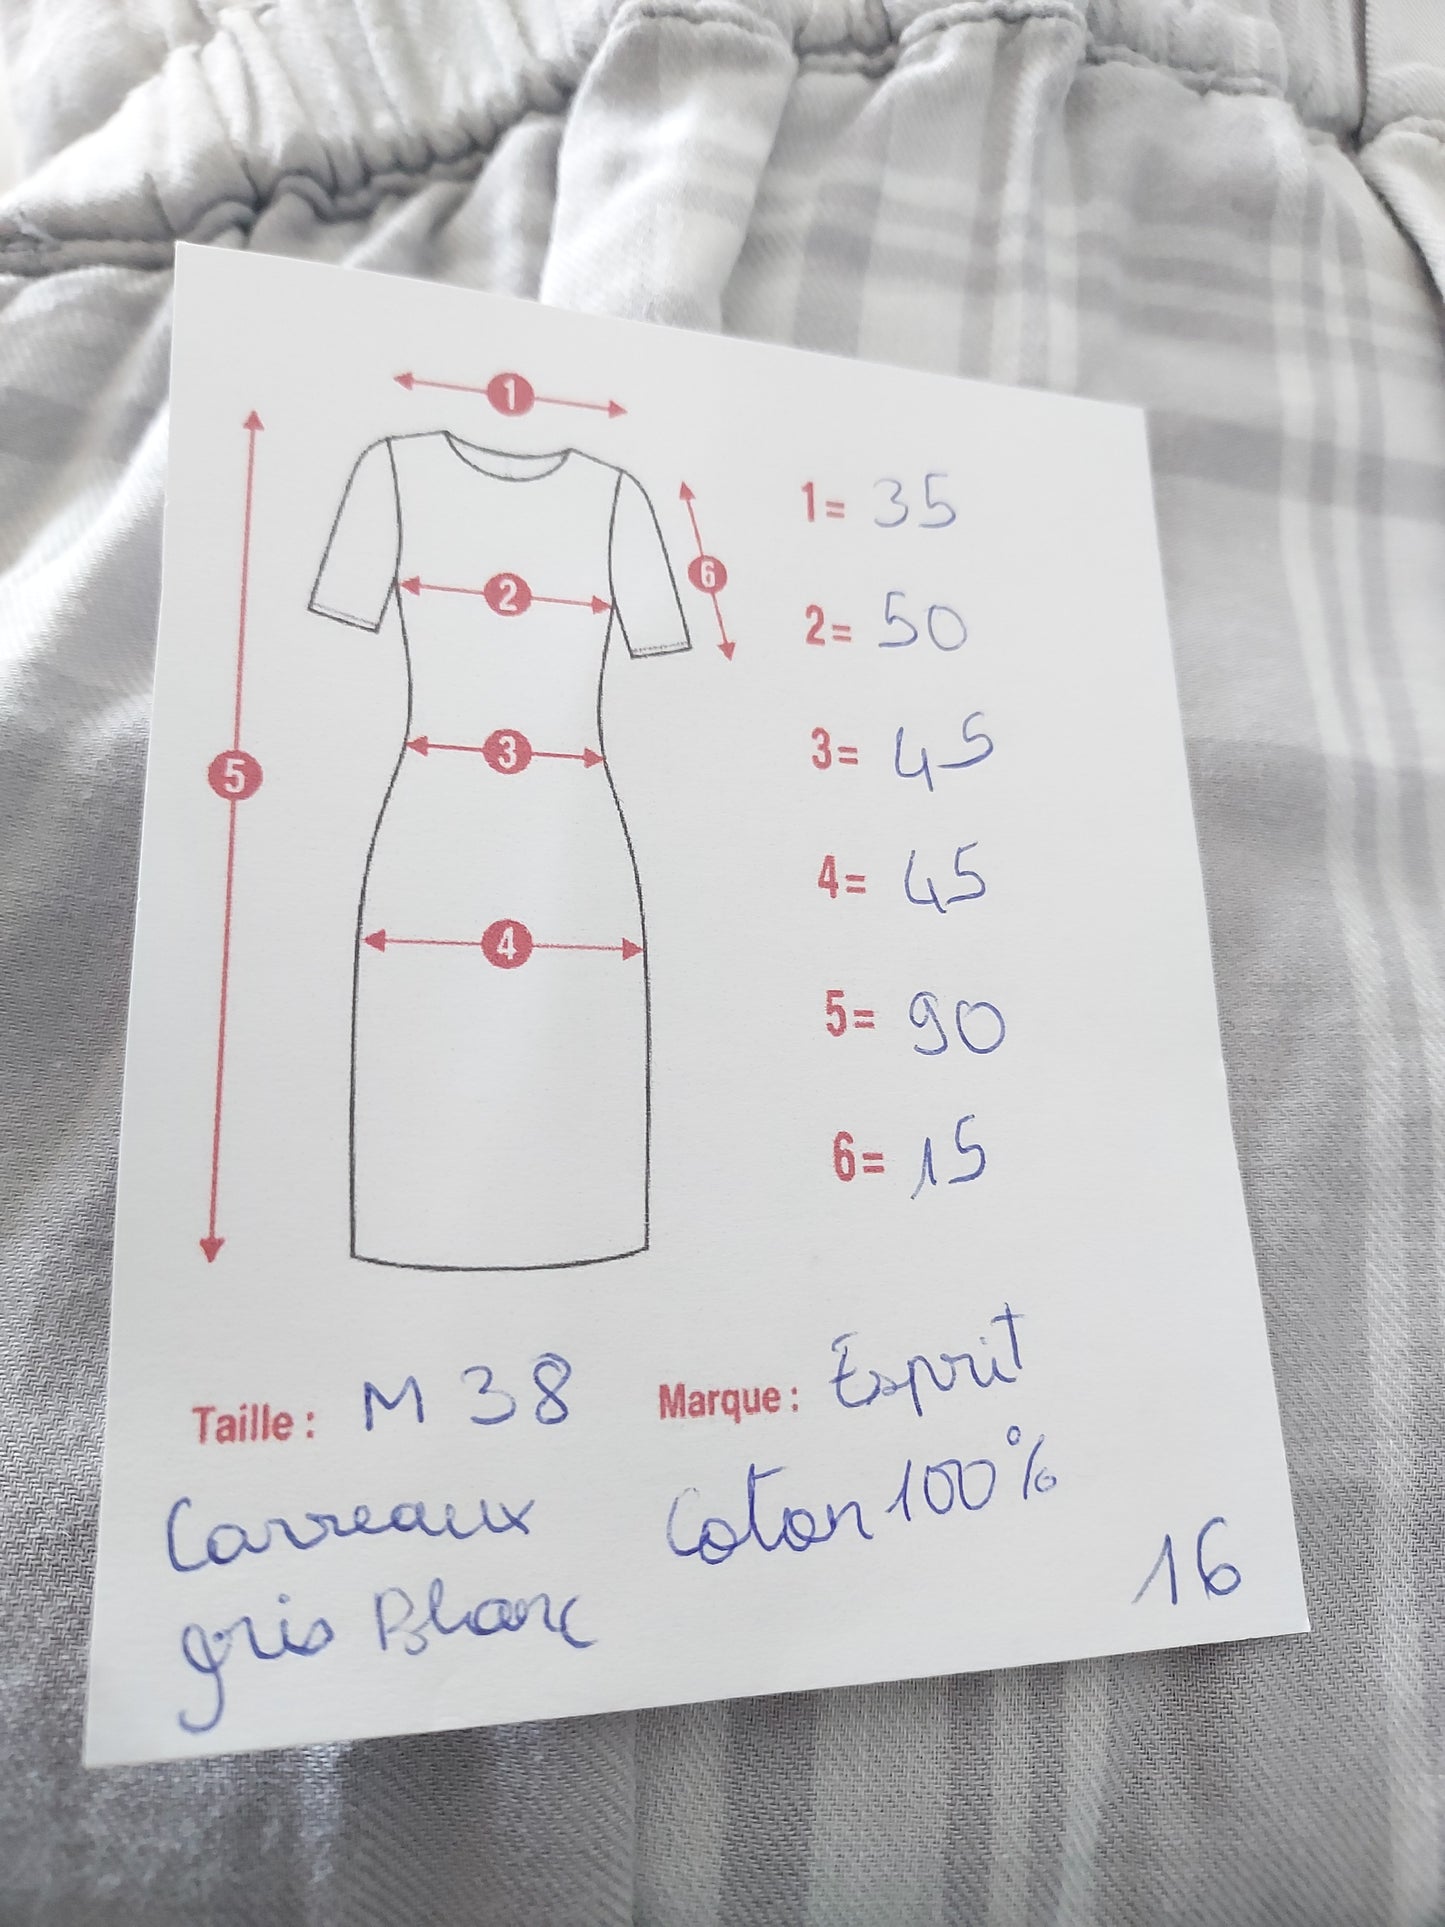 1
2
3
4
5
6
1= 35
2= 50
3= 45
4= 45
5= 90
6= 15
Taille : M 38
Marque : Esprit
Carreaux
gris Blanc
Coton 100%
16